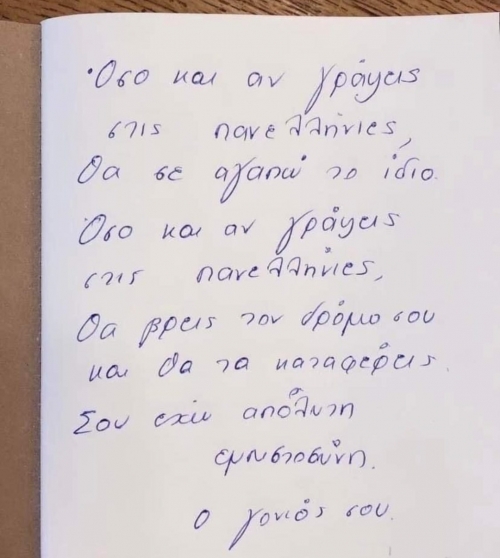 Όσο και αν γράψεις
στις πανελλήνιες,
Θα σε αγαπώ το ίδιο.
Όσο και αν γράψεις
στις πανελλήνιες,
Θα βρεις τον δρόμο σου
και θα τα καταφέρεις.
Σου έχω απόλυτη
εμπιστοσύνη.
Ο γονιός σου.